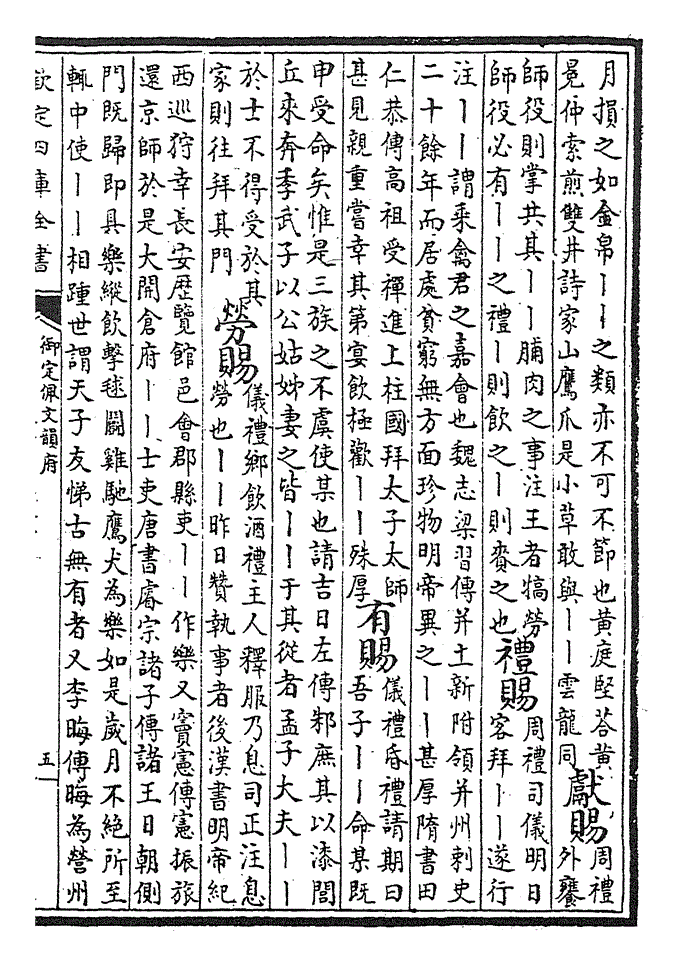 月損之如金帛丨丨之類亦不可不節也黄庭堅荅黄
冕仲索煎雙井詩家山鷹爪是小草敢與丨丨雲龍同
獻賜
周禮
外饔
師役則掌共其丨丨脯肉之事注王者犒勞
師役必有丨丨之禮丨則飲之丨則賚之也
禮賜
周禮司儀明日
客拜丨丨遂行
注丨丨謂乘禽君之嘉會也魏志梁習傳并土新附領并州刺史
二十餘年而居處貧窮無方面珍物明帝異之丨丨甚厚隋書田
仁恭傳高祖受禪進上柱國拜太子太師
甚見親重嘗幸其第宴飲極歡丨丨殊厚
有賜
儀禮昏禮請期曰
吾子丨丨命某既
申受命矣惟是三族之不虞使某也請吉日左傳邾庶其以漆閭
丘來奔季武子以公姑姊妻之皆丨丨于其從者孟子大夫丨丨
於士不得受於其
家則往拜其門
勞賜
儀禮鄉飲酒禮主人釋服乃息司正注息
勞也丨丨昨日贊執事者後漢書明帝紀
西巡狩幸長安歴覽館邑會郡縣吏丨丨作樂又竇憲傳憲振旅
還京師於是大開倉府丨丨士吏唐書睿宗諸子傳諸王日朝側
門既歸即具樂縱飲擊毬鬬雞馳鷹犬為樂如是歲月不絶所至
輒中使丨丨相踵世謂天子友悌古無有者又李晦傳晦為營州
欽定四庫全書
御定佩文韻府
五